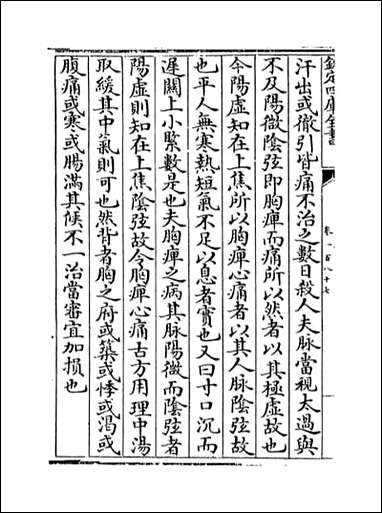 欽定四庫全書
卷一百八十七
汗出或徹引背痛不治之數日殺人夫脉當視太過與
不及陽微陰弦即胸痺而痛所以然者以其極虛故也
今陽虛知在上焦所以胸痺心痛者以其人脉陰弦故
也平人無寒熱短氣不足以息者實也又曰寸口沉而
遲關上小緊數是也夫胸痺之病其脉陽微而陰弦者
陽虛則知在上焦陰弦故令胸痺心痛古方用理中湯
取緩其中氣則可也然背者胸之府或築或悸或渇或
腹痛或寒或腸滿其候不一治當審宜加損也